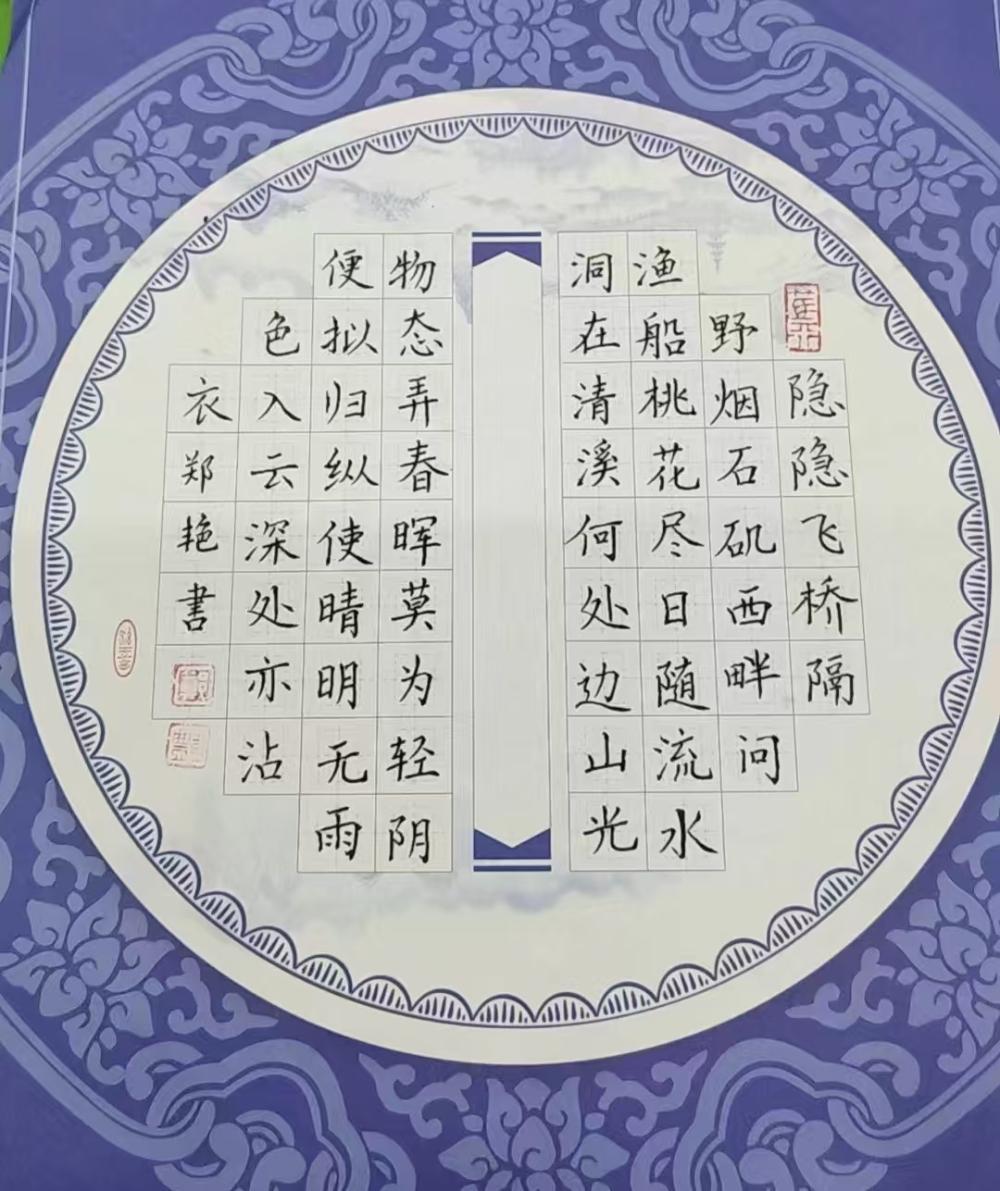 隐隐飞桥隔
野烟石矶西畔问
渔船桃花尽日随流水
洞在清溪何处边山光
物态弄春晖莫为轻阴
便拟归纵使晴明无雨
色入云深处亦沾
衣郑艳書